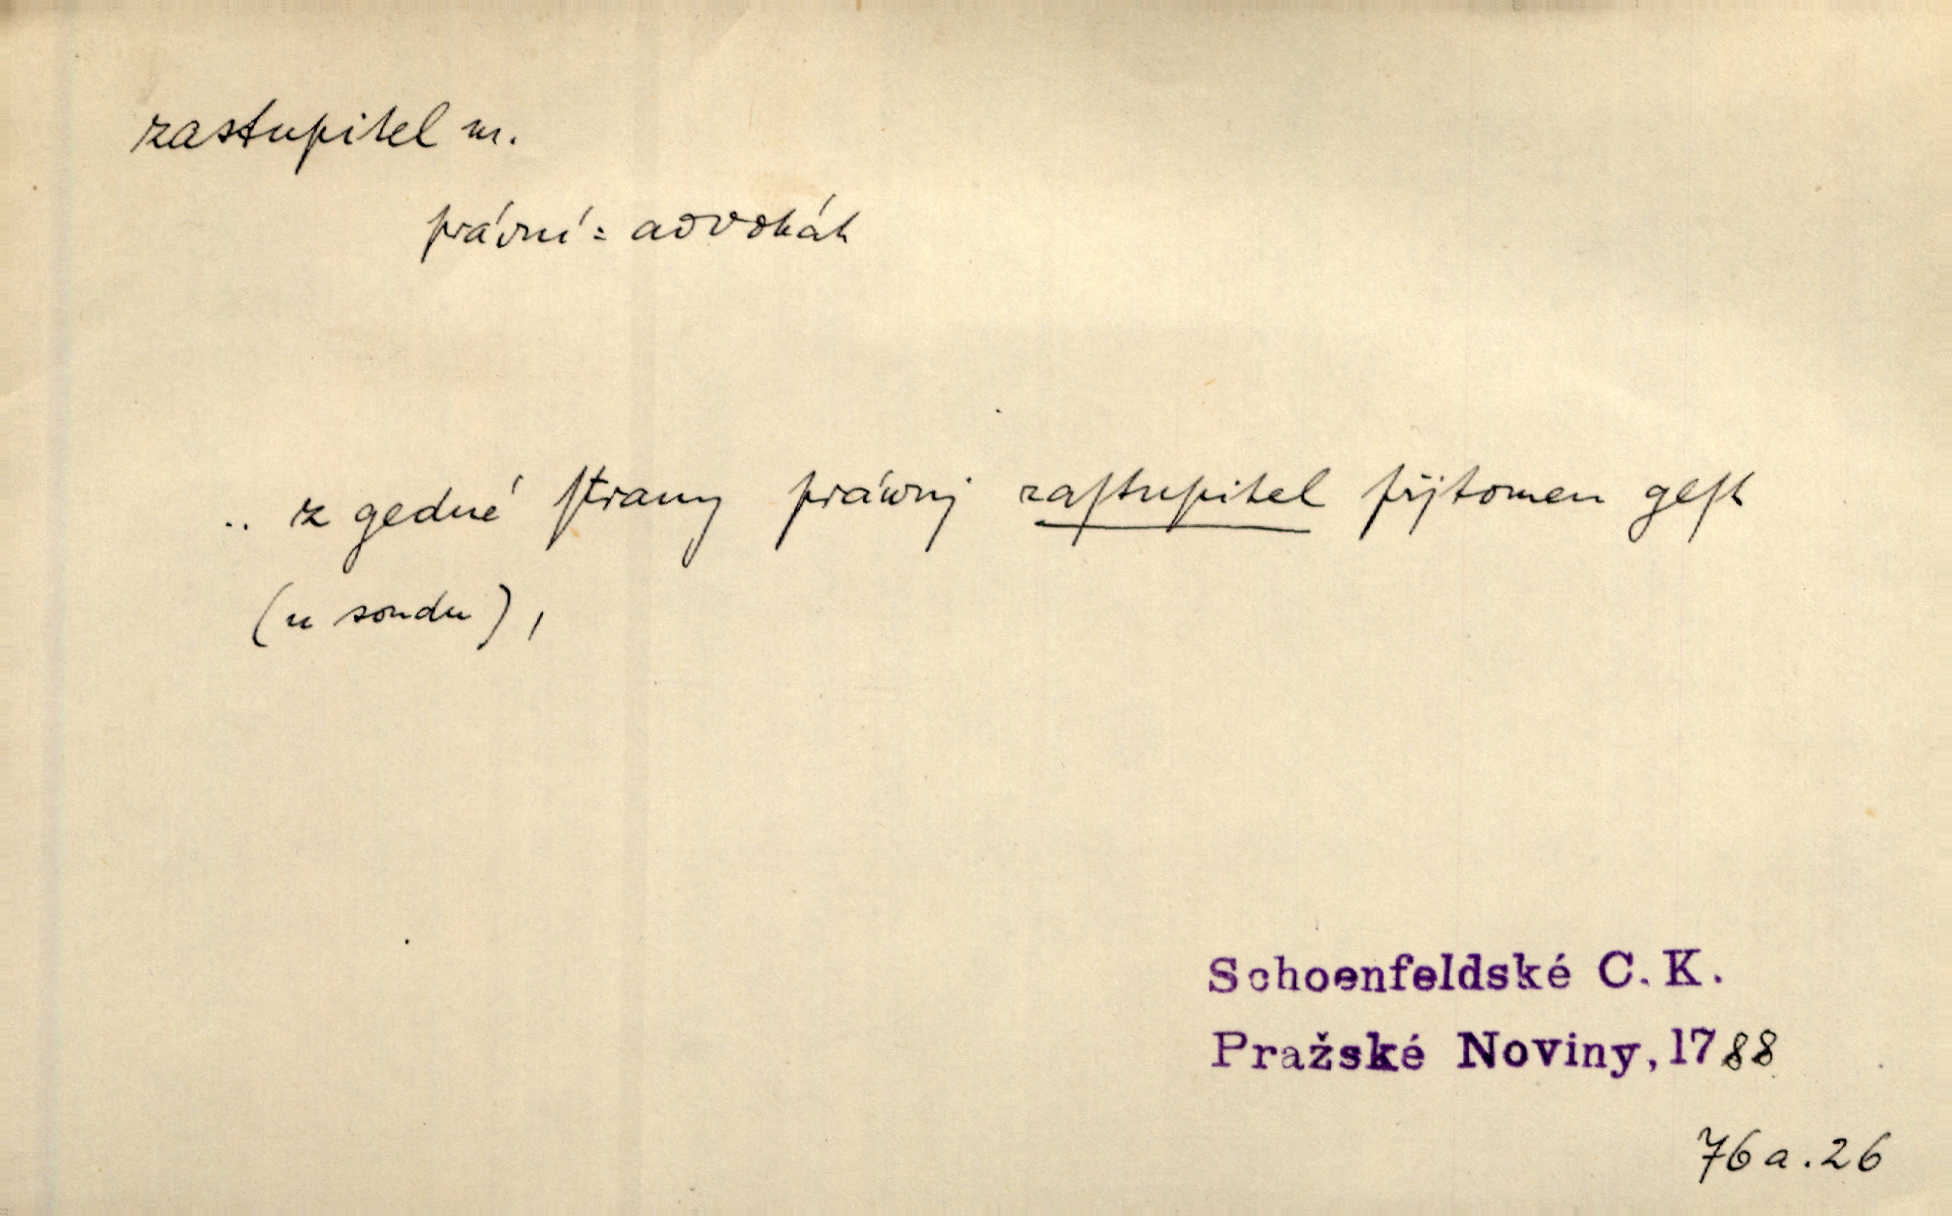 zastupitel m.
právní = advokát
.. z gedné ſtrany práwnj zaſtupitel přjtomen geſt
(u soudu),
Schoenfeldské C. K.
Pražské Noviny, 1788
76a.26